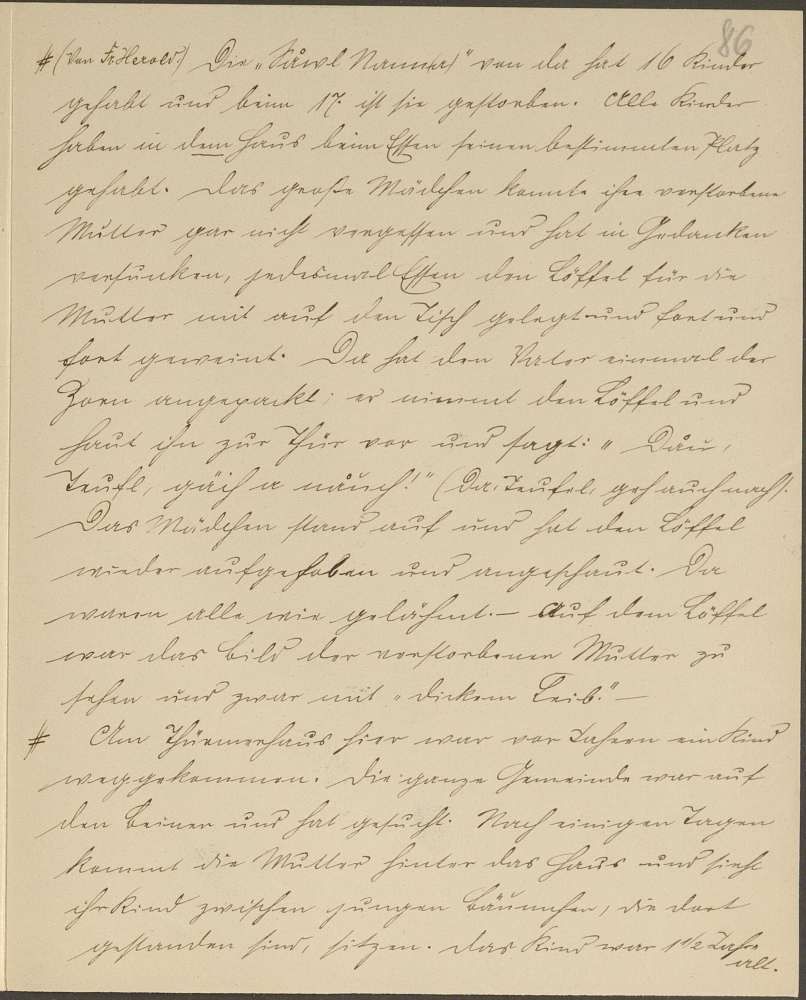 86
# (Von Fr. Herold.) Die „Såwl Nanna" von da hat 16 Kinder
gehabt und beim 17. ist sie gestorben. Alle Kinder
haben in dem Haus beim Essen seinen bestimmten Platz
gehabt. Das große Mädchen konnte ihre verstorbene
Mutter gar nicht vergessen und hat in Gedanken
versunken, jedesmal Essen den Löffel für die
Mutter mit auf den Tisch gelegt und fort und
fort geweint. Da hat den Vater einmal der
Zorn angepackt; er nimmt den Löffel und
haut ihn zur Thür vor und sagt: „Dåu,
Teufl, gäih a nåuch!" (Da, Teufel, geh auch nach).
Das Mädchen stand auf und hat den Löffel
wieder aufgehoben und angeschaut. Da
waren alle wie gelähmt. – Auf dem Löffel
war das Bild der verstorbenen Mutter zu
sehen und zwar mit „dickem Leib." –
# Am Thürmerhaus hier war vor Jahren ein Kind
weggekommen. Die ganze Gemeinde war auf
den Beinen und hat gesucht. Nach einigen Tagen
kommt die Mutter hinter das Haus und sieht
ihr Kind zwischen jungen Bäumchen, die dort
gestanden sind, sitzen. Das Kind war 1 1/2 Jahre
alt.